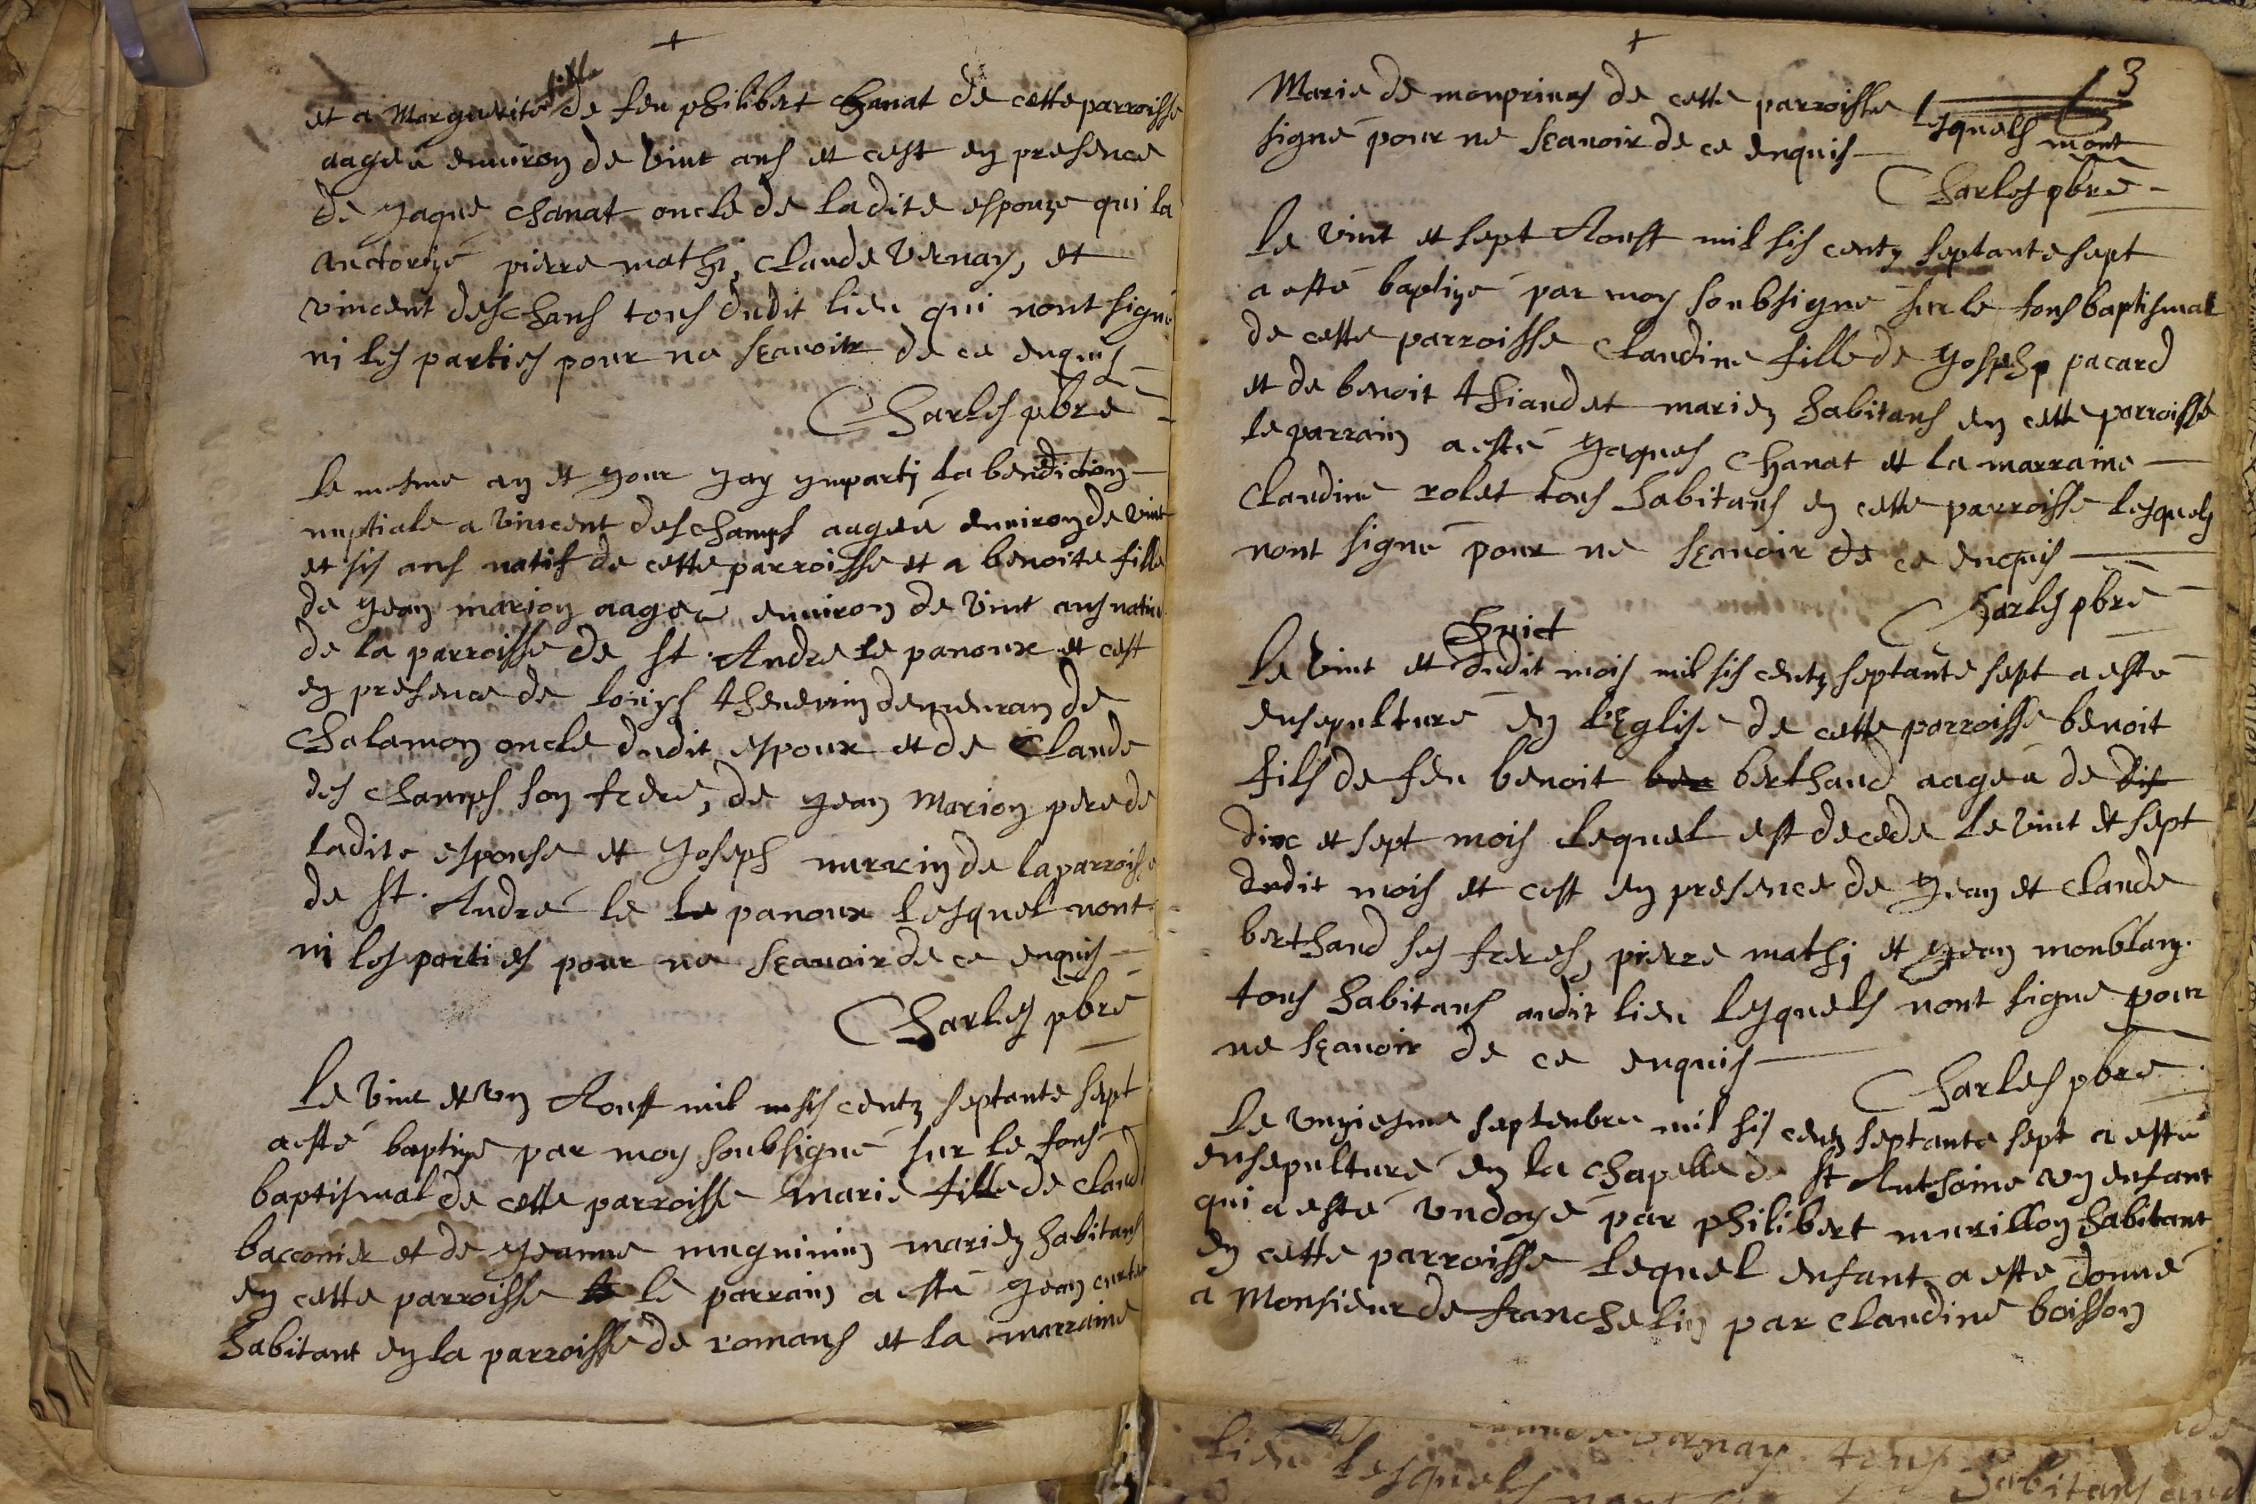 +
et a Marguerite fille de feu philibert chanat de cette parroisse
aageé environ de vint ans et cest en presence
de Jaque chanat oncle de ladite espouze qui la
auctorizé pierre mathi, claude vernay, et
vincent deschans tous dudit lieu qui nont signé
ni les parties pour ne sçavoir de ce enquis
Charles pbre
le mesme an et jour jay imparti la benediction
nuptiale a vincent deschamps aageé environ de vint
et sis ans natif de cette parroisse et a benoite fille
de jean marion aageé environ de vint ans native
de la parroisse de st. Andre le panoux et cest
en presence de louys thenevin demeuran de
chalamon oncle dudit espoux et de Claude
des champs son frere, de jean Marion pere de
ladite esponse et Joseph de la parroisse
de st. André le le panoux lesquel nont
ni les parties pour ne sçavoir de ce enquis
Charles pbre
le vint et un Aoust mil sis centz septante sept
a esté baptize par moy soubsigné sur le fons
baptismal de cette parroisse Marie fille de claud
bacconier et de jeanne muguinin mariez habitans
en cette parroisse le parrain a esté jean
habitant en la parroisse de romans et la marraine
+
3
Marie de monprines de cette parroisse lesquels nont
signé pour ne sçavoir de ce enquis
Charles pbre
le vint et sept Aoust mil sis centz septante sept
a esté baptizé par moy soubsigné sur le fons baptismal
de cette parroisse claudine fille de joseph pacard
et de benoit thiaudet mariez habitans en cette parroisse
le parrain a esté jaques chanat et la marraine
claudine rolet tous habitans en cette parroisse lesquels
nont signé pour ne sçavoir de ce enquis
Charles pbre
le vint et huict dudit mois mil sis centz septante sept a esté
ensepulturé en l'Eglise de cette parroisse benoit
fils de feu benoit ber berthaud aageé de dis
dix et sept mois lequel est decede le vint et sept
dudit mois et cest en presence de jean et claude
berthaud ses freres, pierre mathi et jean monblanz.
tous habitans audit lieu lesquels nont signe pour
ne sçavoir de ce enquis
Charles pbre
le unziesme septenbre mil sis centz septante sept a esté
ensepulturé en la chapelle de st Anthoine un enfant
qui a esté undoyé par philibert murillon habitant
en cette parroisse lequel enfant a esté donné
a Monsieur de franchelin par claudine boisson
vernay tous
lieu lesquels habitans